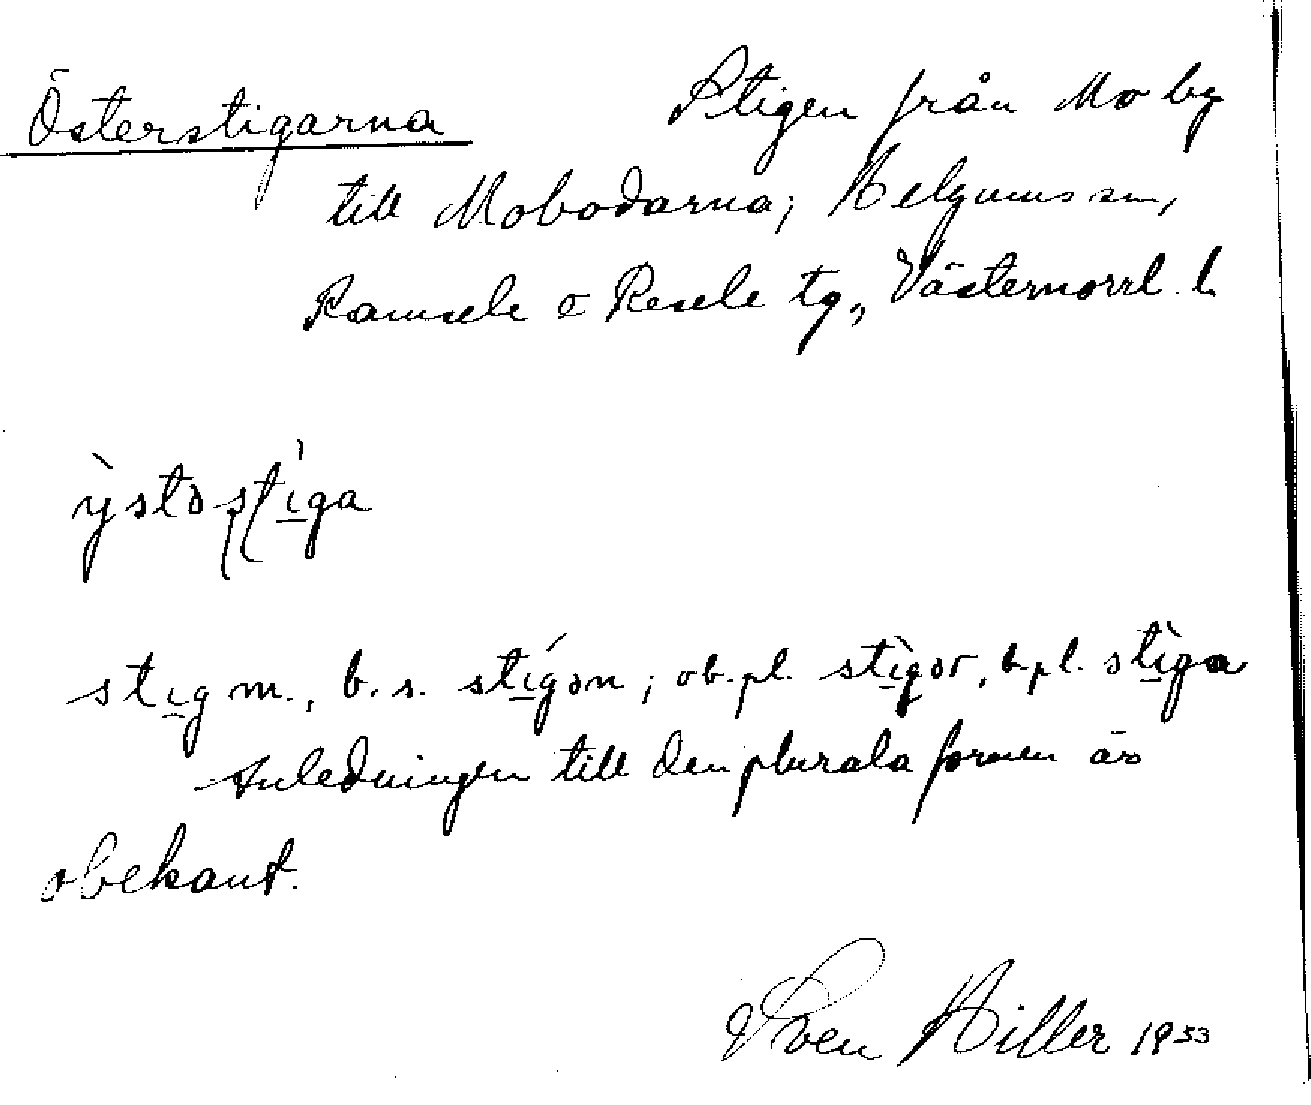 Österstigarna Stigen från Mo by
till Mobodarna; Helgums sn,
Ramsele o Resele tg., Västernorrl. l.
ỳstəstìga
stig m., b. s. stígən; ob.pl. stìgər, b.pl. stìga
Anledningen till den plurala formen är
obekant.
Sven Hiller 1933